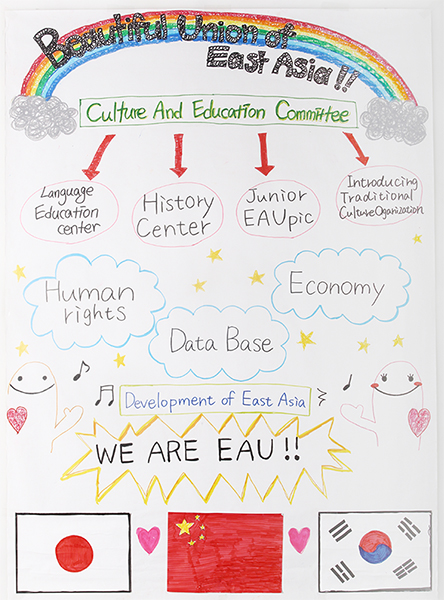 Beautiful Union of
East Asia!!
Culture And Education Committee
Language
Education
center
History
Center
Junior
EAUpic
Introducing
Traditional
Culture Oganization
Human
rights
Data Base
Economy
Development of East Asia
WE ARE EAU!!